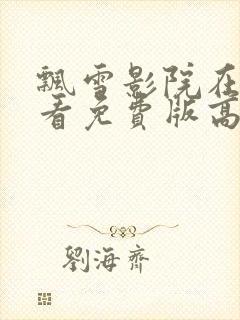 飄雪影院在
看免費版高
劉海齊